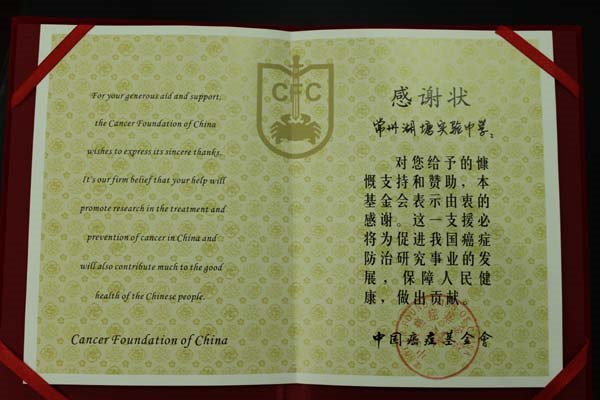 For your generous aid and support,
the Cancer Foundation of China
wishes to express its sincere thanks.
It's our firm belief that your help will
promote research in the treatment and
prevention of cancer in China and
will also contribute much to the good
health of the Chinese people.
Cancer Foundation of China
CFC
感谢状
常州湖塘实验中学：
对您给予的慷
慨支持和赞助，本
基金会表示由衷的
感谢。这一支援必
将为促进我国癌症
防治研究事业的发
展，保障人民健
康，做出贡献。
中国癌症基金會